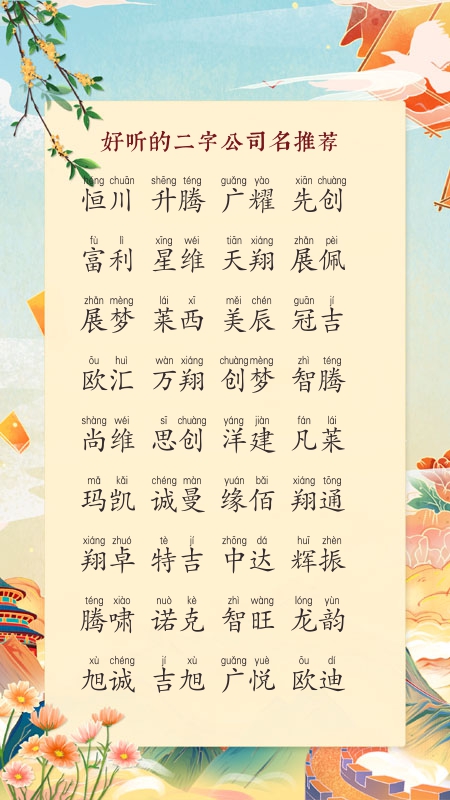 好听的二字公司名推荐
héng chuān shēng téng guǎng yào xiān chuàng
恒川 升腾 广耀 先创
fù lì xīng wéi tiān xiáng zhǎn pèi
富利 星维 天翔 展佩
zhǎn mèng lái xī měi chén guān jí
展梦 莱西 美辰 冠吉
ōu huì wàn xiáng chuàng mèng zhì téng
欧汇 万翔 创梦 智腾
shàng wéi sī chuàng yáng jiàn fán lái
尚维 思创 洋建 凡莱
mǎ kǎi chéng màn yuán bǎi xiáng tōng
玛凯 诚曼 缘佰 翔通
xiáng zhuó tè jí zhōng dá huī zhèn
翔卓 特吉 中达 辉振
téng xiào nuò kè zhì wàng lóng yùn
腾啸 诺克 智旺 龙韵
xù chéng jí xù guǎng yuè ōu dí
旭诚 吉旭 广悦 欧迪